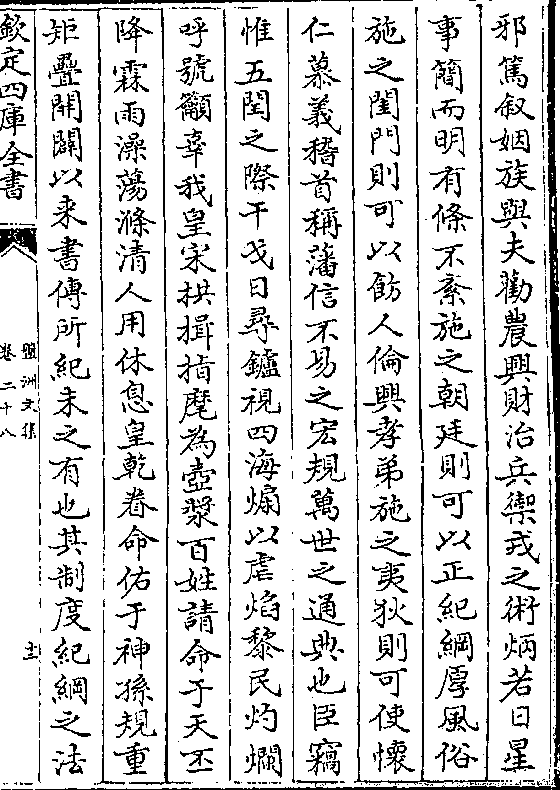 邪篤叙姻族與夫勸農興財治兵禦戎之術炳若日星
事簡而明有條不紊施之朝廷則可以正紀綱厚風俗
施之閨門則可以飭人倫興孝弟施之夷狄則可使懷
仁慕義稽首稱藩信不易之宏規萬世之通典也臣竊
惟五閏之際干戈日尋鑪視四海煽以虐焰黎民灼爛
呼號籲辜我皇宋拱揖指麾為壺漿百姓請命于天丕
降霖雨澡蕩滌清人用休息皇乾眷命佑于神孫規重
矩疊開闢以来書傳所紀未之有也其制度紀綱之法
欽定四庫全書
盤洲文集
卷二十八
十二